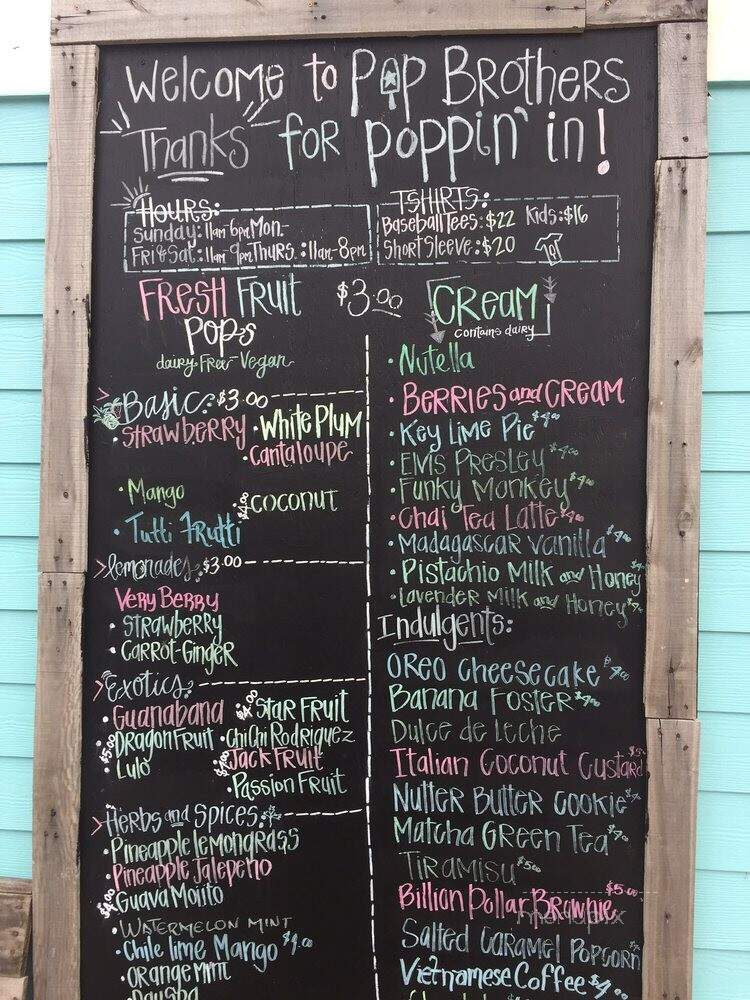 Welcome to Pop Brothers
Thanks for poppin' in!
Hours:
Sunday: 11am-6pm Mon.-
Fri & Sat: 11am-9pm Thurs.: 11am-8pm
TSHIRTS:
Baseball Tees: $22 Kids: $16
Short Sleeve: $20
Fresh Fruit
Pops
dairy Free-Vegan
$3.00
Basic: $3.00
• Strawberry • White Plum
• Cantaloupe
• Mango
$4.00 • Coconut
• Tutti Frutti
lemonades: $3.00
Very Berry
• Strawberry
• Carrot-Ginger
Exotics:
• Guanabana $4.00 • Star Fruit
$5.00 • Dragon Fruit • Chi Chi Rodriguez
• Lulo • Jack Fruit
• Passion Fruit
Herbs and Spices:
• Pineapple lemongrass
• Pineapple Jalepeño
$4.00 Guava Mojito
• Watermelon Mint
• Chile lime Mango $4.00
• Orange Mint
CREAM
contains dairy
• Nutella
• Berries and Cream
• Key Lime Pie $4.00
• Elvis Presley $4.00
• Funky Monkey $4.00
• Chai Tea Latte $4.00
• Madagascar Vanilla $4.00
• Pistachio Milk and Honey
• Lavender Milk and Honey $4
Indulgents:
Oreo Cheesecake $4.00
Banana Foster $4.00
Dulce de Leche
Italian Coconut Custard $5
Nutter Butter Cookie $4
Matcha Green Tea $4.00
Tiramisu $5.00
Billion Dollar Brownie $5.00
Salted Caramel Popcorn
Vietnamese Coffee $4.00